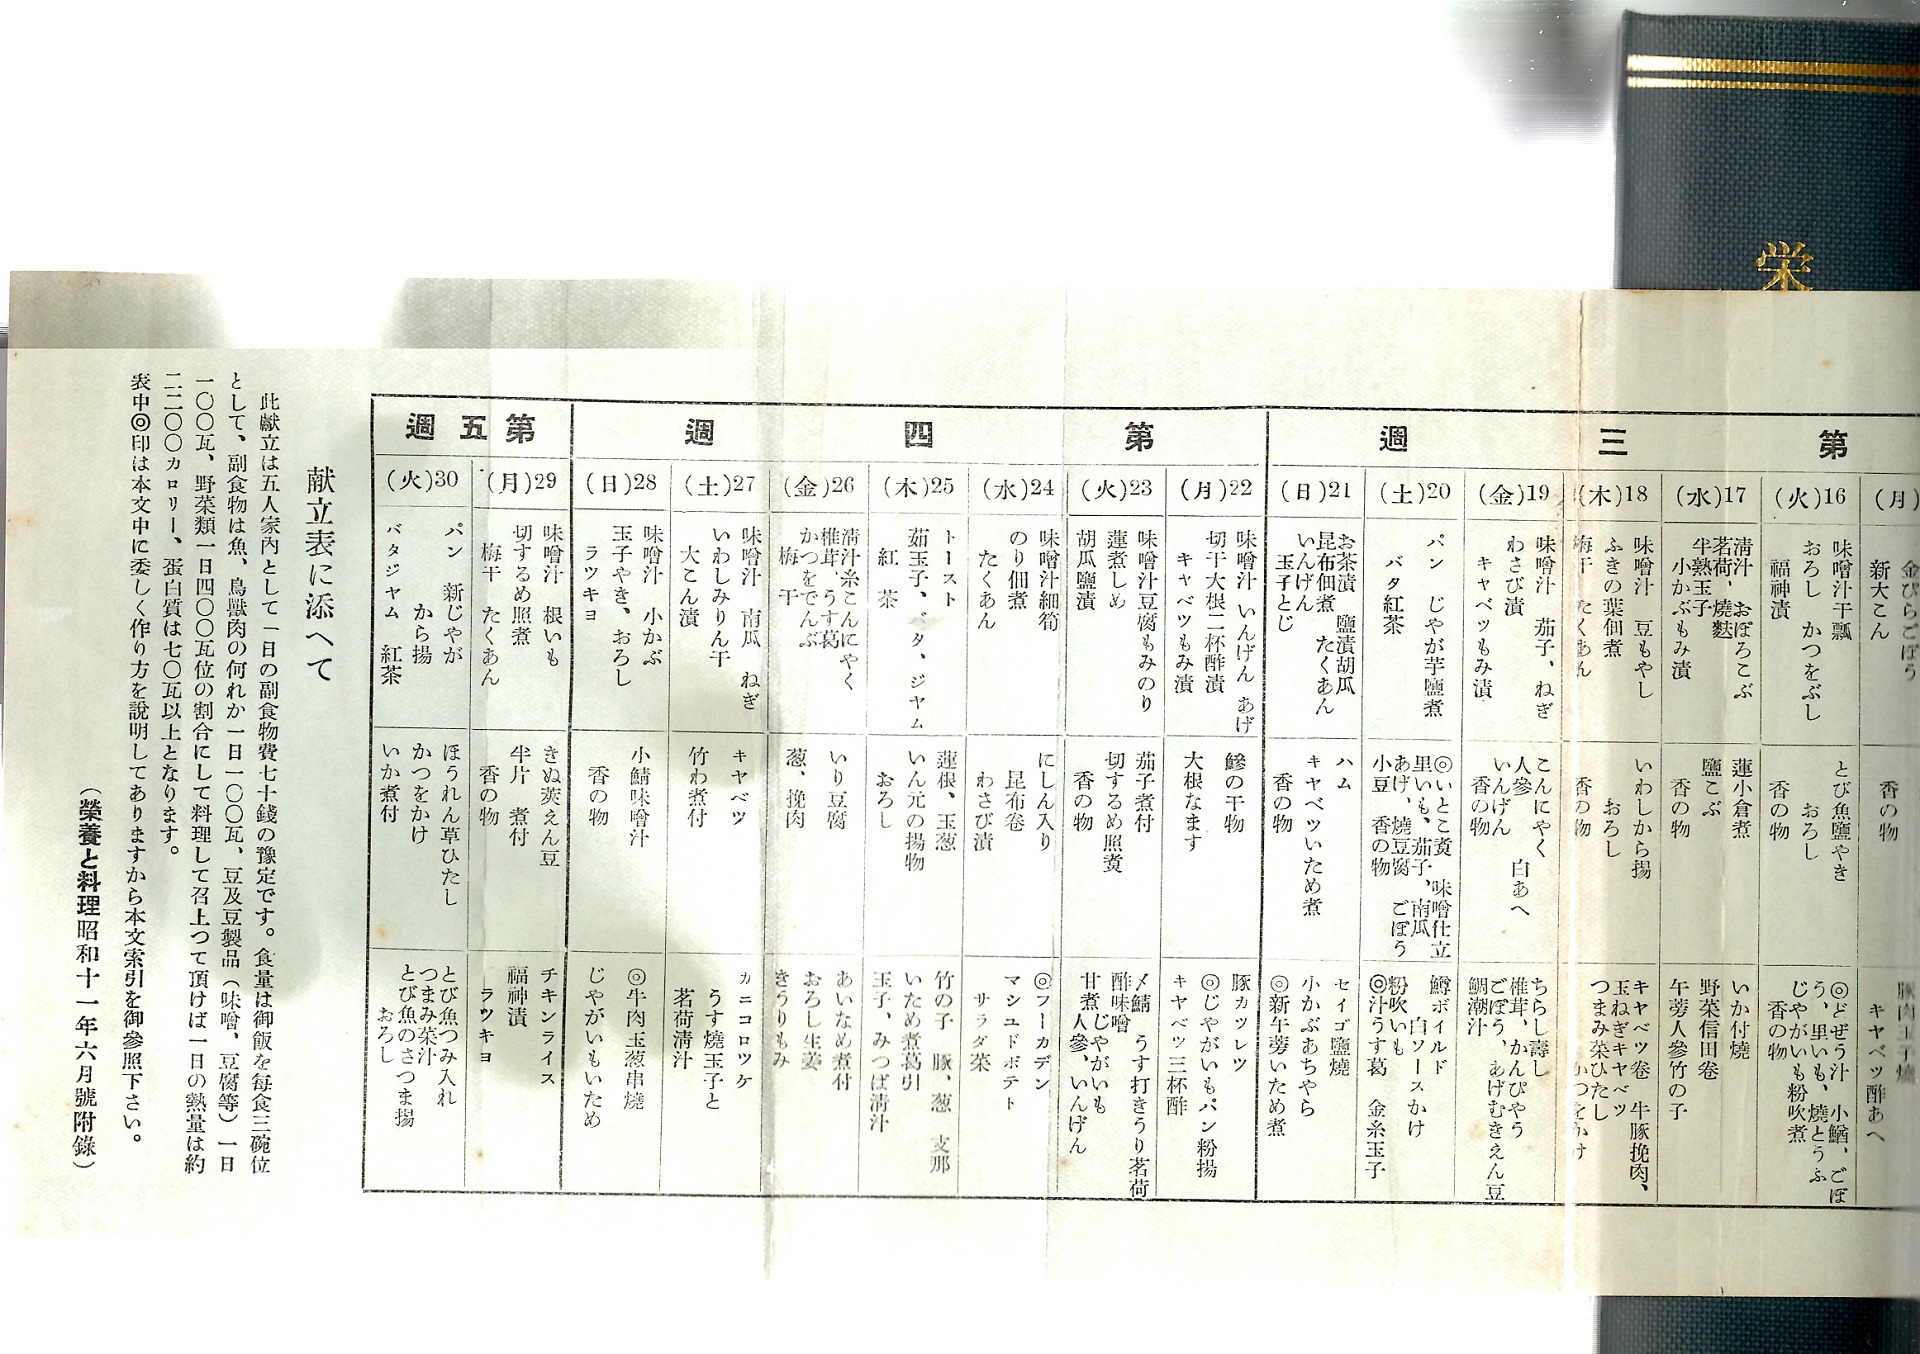 栄
第三週
(月)
金ぴらごぼう
新大こん
香の物
豚肉玉子燒
キヤベツ酢あへ
(火)16
味噌汁干瓢
おろし かつをぶし
福神漬
とび魚鹽やき
おろし
香の物
◎どぜう汁 小鰌、ごぼ
う、里いも、燒とうふ
じやがいも粉吹煮
香の物
(水)17
淸汁 おぼろこぶ
茗荷、燒麩
半熟玉子
小かぶもみ漬
蓮小倉煮
鹽こぶ
香の物
いか付燒
野菜信田卷
午蒡人參竹の子
(木)18
味噌汁 豆もやし
ふきの葉佃煮
梅干 たくあん
いわしから揚
おろし
香の物
キヤベツ卷 牛豚挽肉、
玉ねぎキヤベツ
つまみ菜ひたし
かつをかけ
(金)19
味噌汁 茄子、ねぎ
わさび漬
キヤベツもみ漬
こんにやく 白あへ
人參
いんげん
香の物
ちらし壽し
椎茸、かんぴやう
ごぼう、あげむきえん豆
鯛潮汁
(土)20
パン じやが芋鹽煮
バタ紅茶
◎いとこ煑 味噌仕立
里いも、茄子、南瓜
あげ、燒豆腐 ごぼう
小豆 香の物
鱒ボイルド
白ソースかけ
粉吹いも
◎汁うす葛 金糸玉子
(日)21
お茶漬 鹽漬胡瓜
昆布佃煮 たくあん
いんげん
玉子とじ
ハム
キヤベツいため煮
香の物
セイゴ鹽燒
小かぶあちやら
◎新午蒡いため煮
第四週
(月)22
味噌汁 いんげん あげ
切干大根二杯酢漬
キャベツもみ漬
鰺の干物
大根なます
豚カツレツ
◎じやがいもパン粉揚
キヤベツ三杯酢
(火)23
味噌汁豆腐もみのり
蓮煮しめ
胡瓜鹽漬
茄子煮付
切するめ照煮
香の物
〆鯖 うす打きうり茗荷
酢味噌
甘煮 じやがいも
人參、いんげん
(水)24
味噌汁細筍
のり佃煮
たくあん
にしん入り
昆布卷
わさび漬
◎フーカデン
マシユドポテト
サラダ菜
(木)25
トースト
茹玉子、バタ、ジヤム
紅茶
蓮根、玉葱
いん元の揚物
おろし
竹の子 豚、葱 支那
いため煮葛引
玉子、みつば淸汁
(金)26
淸汁糸こんにやく
椎茸、うす葛
かつをでんぶ
梅干
いり豆腐
葱、挽肉
あいなめ煮付
おろし生姜
きうりもみ
(土)27
味噌汁 南瓜 ねぎ
いわしみりん干
大こん漬
キヤベツ
竹わ煮付
カニコロツケ
うす燒玉子と
茗荷淸汁
(日)28
味噌汁 小かぶ
玉子やき、おろし
ラツキヨ
小鯖味噌汁
香の物
◎牛肉玉葱串燒
じやがいもいため
第五週
(月)29
味噌汁 根いも
切するめ照煮
梅干 たくあん
きぬ莢えん豆
半片 煮付
香の物
チキンライス
福神漬
ラツキヨ
(火)30
パン 新じやが
から揚
バタジヤム 紅茶
ほうれん草ひたし
かつをかけ
いか煮付
とび魚つみ入れ
つまみ菜汁
とび魚のさつま揚
おろし
献立表に添へて
此獻立は五人家內として一日の副食物費七十錢の豫定です。食量は御飯を每食三碗位
として、副食物は魚、鳥獸肉の何れか一日一〇〇瓦、豆及豆製品(味噌、豆腐等)一日
一〇〇瓦、野菜類一日四〇〇瓦位の割合にして料理して召上つて頂けば一日の熱量は約
二二〇〇カロリー、蛋白質は七〇瓦以上となります。
表中◎印は本文中に委しく作り方を說明してありますから本文索引を御參照下さい。
(榮養と料理昭和十一年六月號附錄)